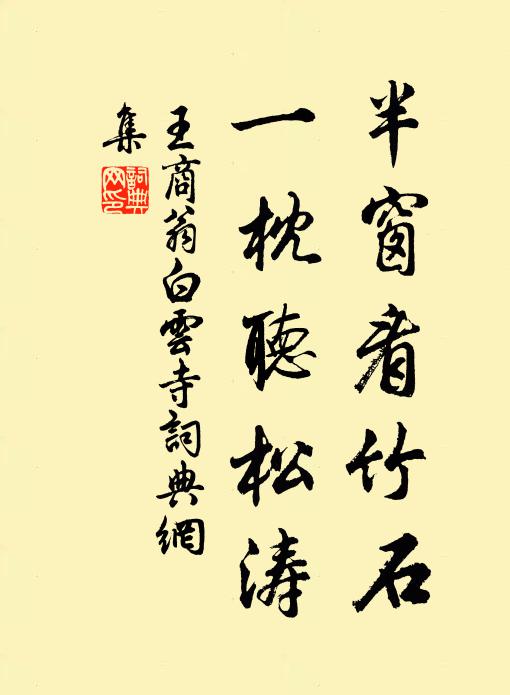 半窗看竹石
一枕聽松涛
王商翁白雲寺詞典網
集
詞典
网印